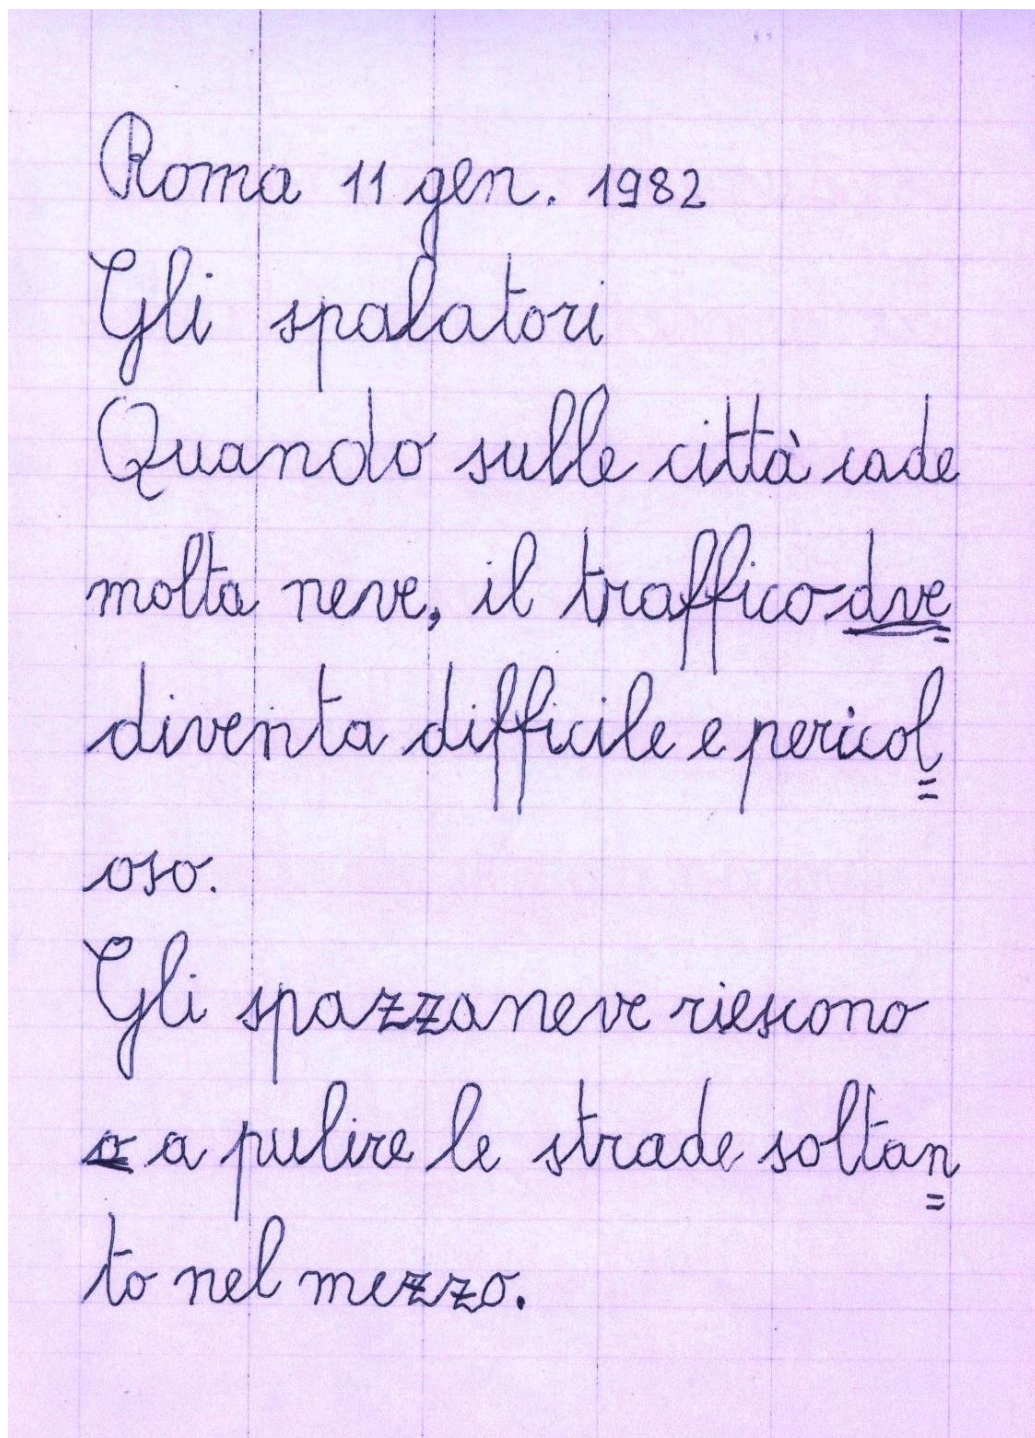 Roma 11 gen. 1982
Gli spalatori
Quando sulle città cade
molta neve, il traffico dve
diventa difficile e pericol=
oso.
Gli spazzaneve riescono
a a pulire le strade soltan=
to nel mezzo.